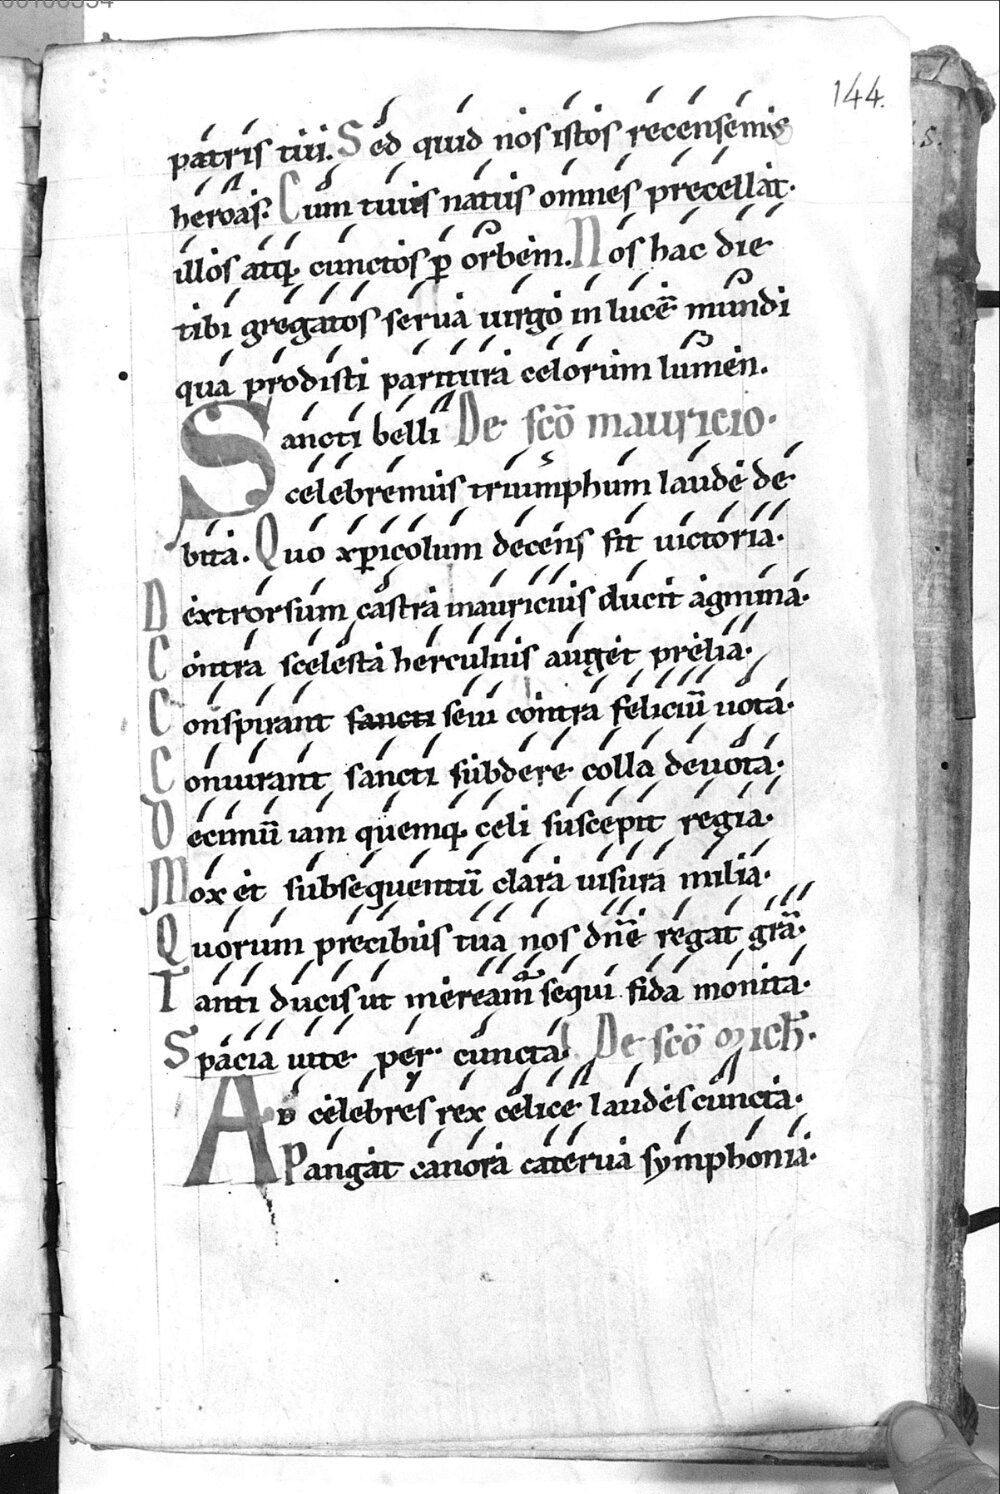 144.
patris tui. Sed quid nos istos recensemus
heroas. Cum tuus natus omnes precellat.
illos atq. cunctos ꝑ orbem. Nos hac die
tibi gregatos serua uirgo in lucē mundi
qua prodisti paritura celorum lumen.
Sancti belli De scō mauricio.
celebremus triumphum laude de
bita. Quo xpicolum decens fit uictoria.
Dextrorsum castra mauricius ducit agmina.
Contra scelesta herculius auget prelia.
Conspirant sancti seui contra feliciū uota.
Coniurant sancti subdere colla deuota.
Decimū iam quemq. celi suscepit regia.
Mox et subsequentū clara uisura milia.
Quorum precibus tua nos dn̄e regat grā.
Tanti ducis ut meream̄ sequi fida monita.
Spacia uite per cuncta. De scō mich̄.
Ad celebres rex celice laudes cuncta.
Pangat canora caterua symphonia.